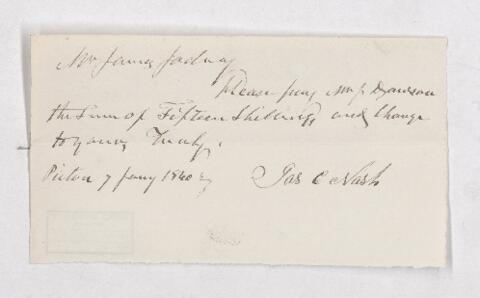 Mr James
Please pay Mr J Dyawson
the Sum of Fifteen Shillings and Charge
to yours Truly,
Picton 7 Jany 1840 Jas C Nash